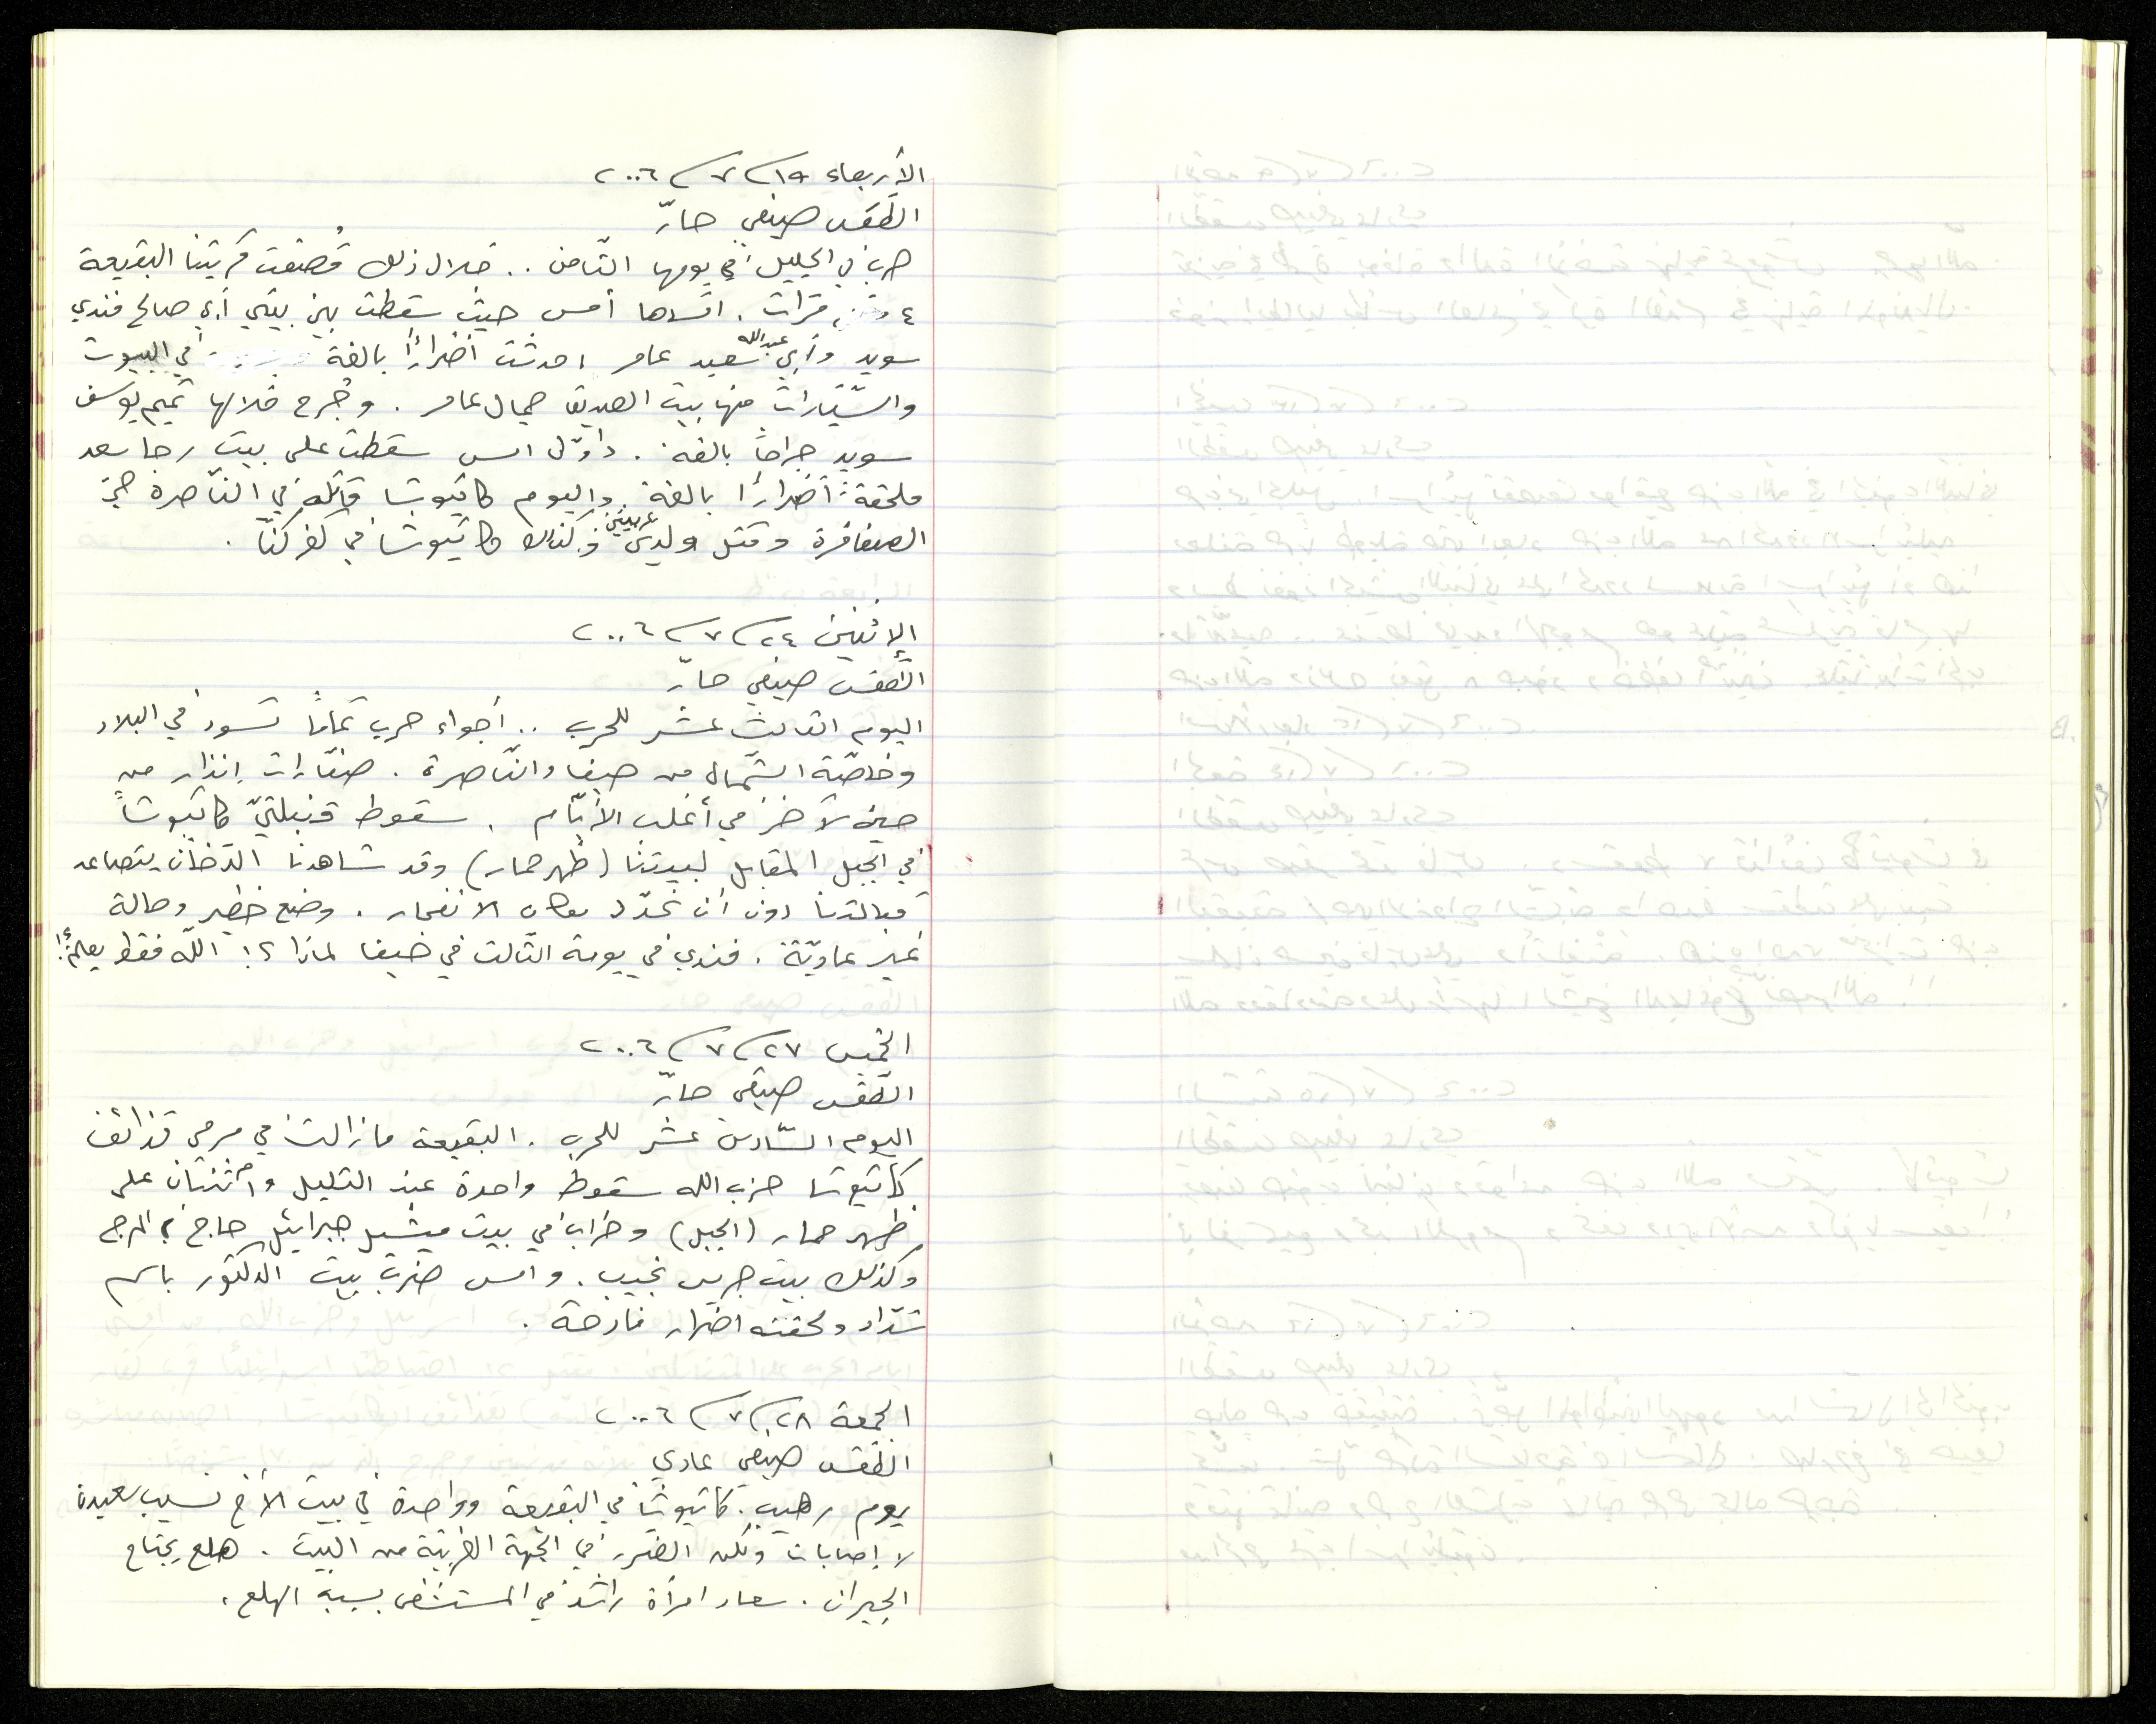 الأربعاء ١٩/٧/٢٠٠٦
الطقس صيفي حارّ
حرب في الجليل في يومها الثّامن .. خلال ذلك قُصفت قريتنا البقيعة
٤ مرّات . اشدها أمس حيث سقطت بين بيتي أبي صالح فندي
سويد وأبي عبدالله سعيد عامر احدثت اضرارًا بالغة في البيوت
والسّيّارات منها بيت الصديق جمال عامر . وجُرح خلالها تميم يوسف
سويد جراحًا بالغة . وأوّل امس سقطت على بيت رجا سعد
ملحقةً أضرارًا بالغة واليوم كاتيوشا قاتلة في النّاصرة حيّ
الصفافرة ومقتل ولدين عربيين وكذلك كاتيوشا في كفركنّا .
الإثنين ٢٤/٧/٢٠٠٦
الطّقس صيفي حارّ
اليوم الثالث عشر للحرب .. أجواء حرب تمامًا تسود في البلاد
وخاصّة الشّمال من حيفا والنّاصرة . صفّارات إنذار من
حين لآخر في أغلب الأيّام . سقوط قنبلتيّ كاتيوشا
في الجبل المقابل لبيتنا (ظهر حمار) وقد شاهدنا الدّخان يتصاعد
قبالتنا دون أن نحدّد مكان الانفجار . وضع خطير وحالة
غير عاديّة . فندي في يومه الثّالث في حيفا لماذا ؟! اللّه فقط يعلم !
الخميس ٢٧/٧/٢٠٠٦
الطّقس صيفي حارّ
اليوم السّادس عشر للحرب . البقيعة ما زالت في مرمى قذائف
كاتيوشا حزب الله سقوط واحدة عند التليل واثنتان على
ظهر حمار (الجبل) وخراب في بيت ميشيل جبرايئل حاج في المرج
وكذلك بيت جريس نجيب . وامس ضرب بيت الدكتور باسم
شدّاد ولحقته اضرار فادحة .
الجمعة ٢٨/٧/٢٠٠٦
الطّقس صيفي عادي
يوم رهيب . كاتيوشا في البقيعة وواحدة في بيت الأخ نسيب سعيد
لا إصابات ولكن الضّرر في الجهة الغربيّة من البيت . هلع يجتاح
الجيران . سعاد امرأة راشد في المستشفى بسبب الهلع .